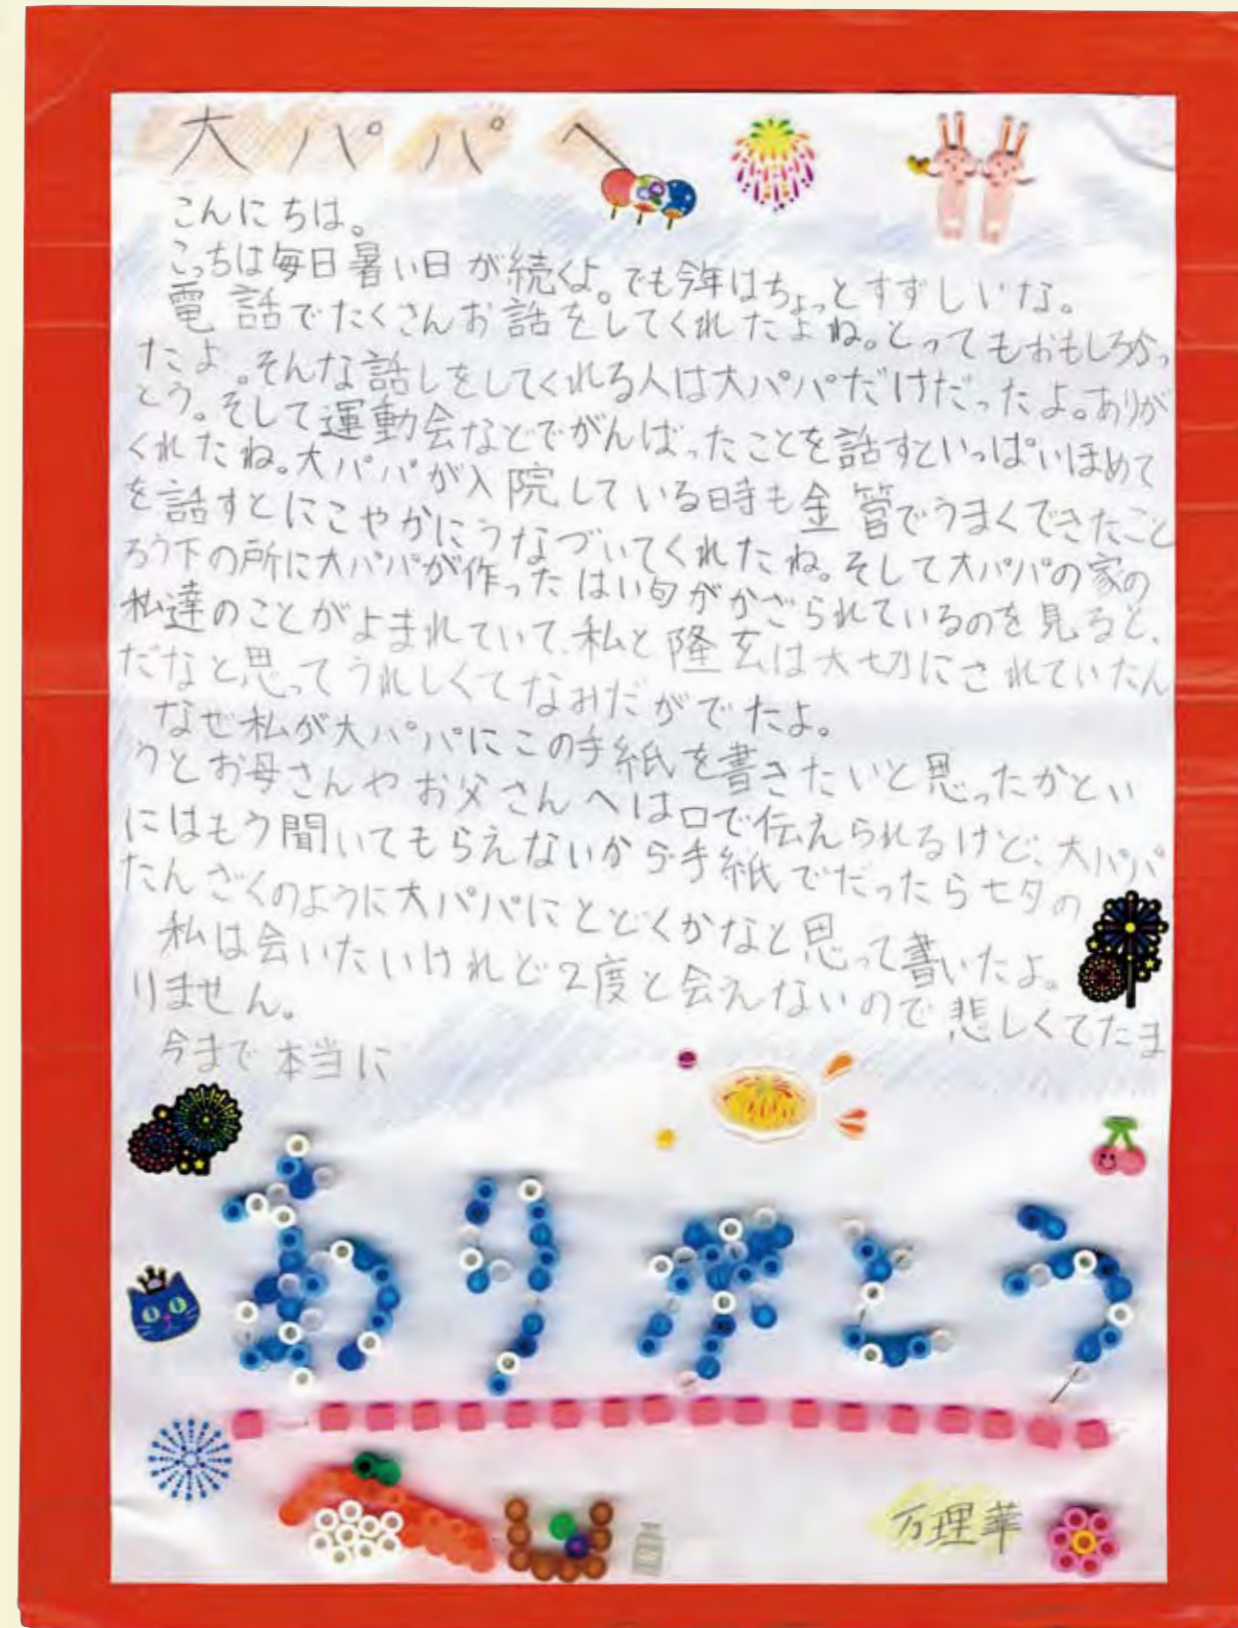 大パパへ
こんにちは。
こっちは毎日暑い日が続くよ。でも今年はちょっとすずしいな。
電話でたくさんお話をしてくれたよね。とってもおもしろかっ
たよ。そんな話しをしてくれる人は大パパだけだったよ。ありが
とう。そして運動会などでがんばったことを話すといっぱいほめて
くれたね。大パパが入院している時も金管でうまくできたこと
を話すとにこやかにうなづいてくれたね。そして大パパの家の
ろう下の所に大パパが作ったはい句がかざられているのを見ると、
私達のことがよまれていて、私と隆玄は大切にされていたん
だなと思ってうれしくてなみだがでたよ。
なぜ私が大パパにこの手紙を書きたいと思ったかとい
うとお母さんやお父さんへは口で伝えられるけど、大パパ
にはもう聞いてもらえないから手紙でだったら七夕の
たんざくのように大パパにとどくかなと思って書いたよ。
私は会いたいけれど2度と会えないので悲しくてたま
りません。
今まで本当に
ありがとう
万理華